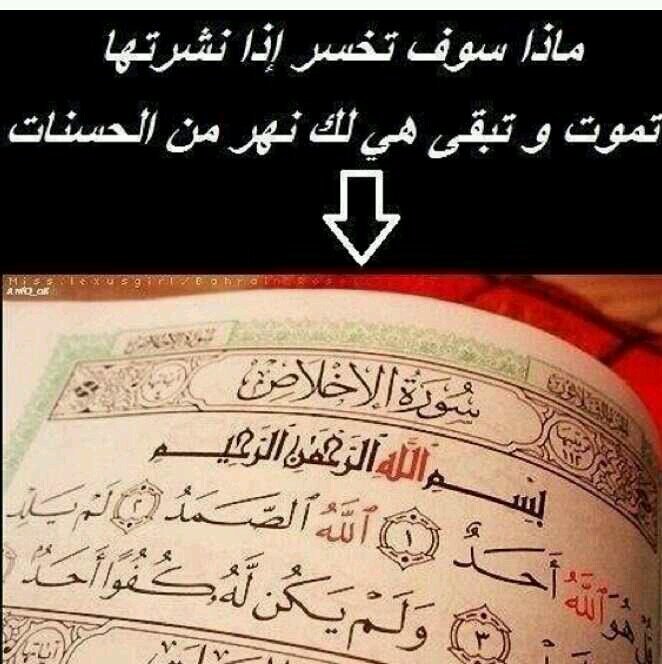 ماذا سوف تخسر إذا نشرتها
تموت و تبقى هي لك نهر من الحسنات
Miss.lexusgirl/Bahrain
سُورَةُ الإِخْلَاصِ
بِسْمِ اللَّهِ الرَّحْمَٰنِ الرَّحِيمِ
هُوَ ٱللَّهُ أَحَدٌ ١ ٱللَّهُ ٱلصَّمَدُ ٢ لَمْ يَلِدْ
٣ وَلَمْ يَكُن لَّهُۥ كُفُوًا أَحَدٌ